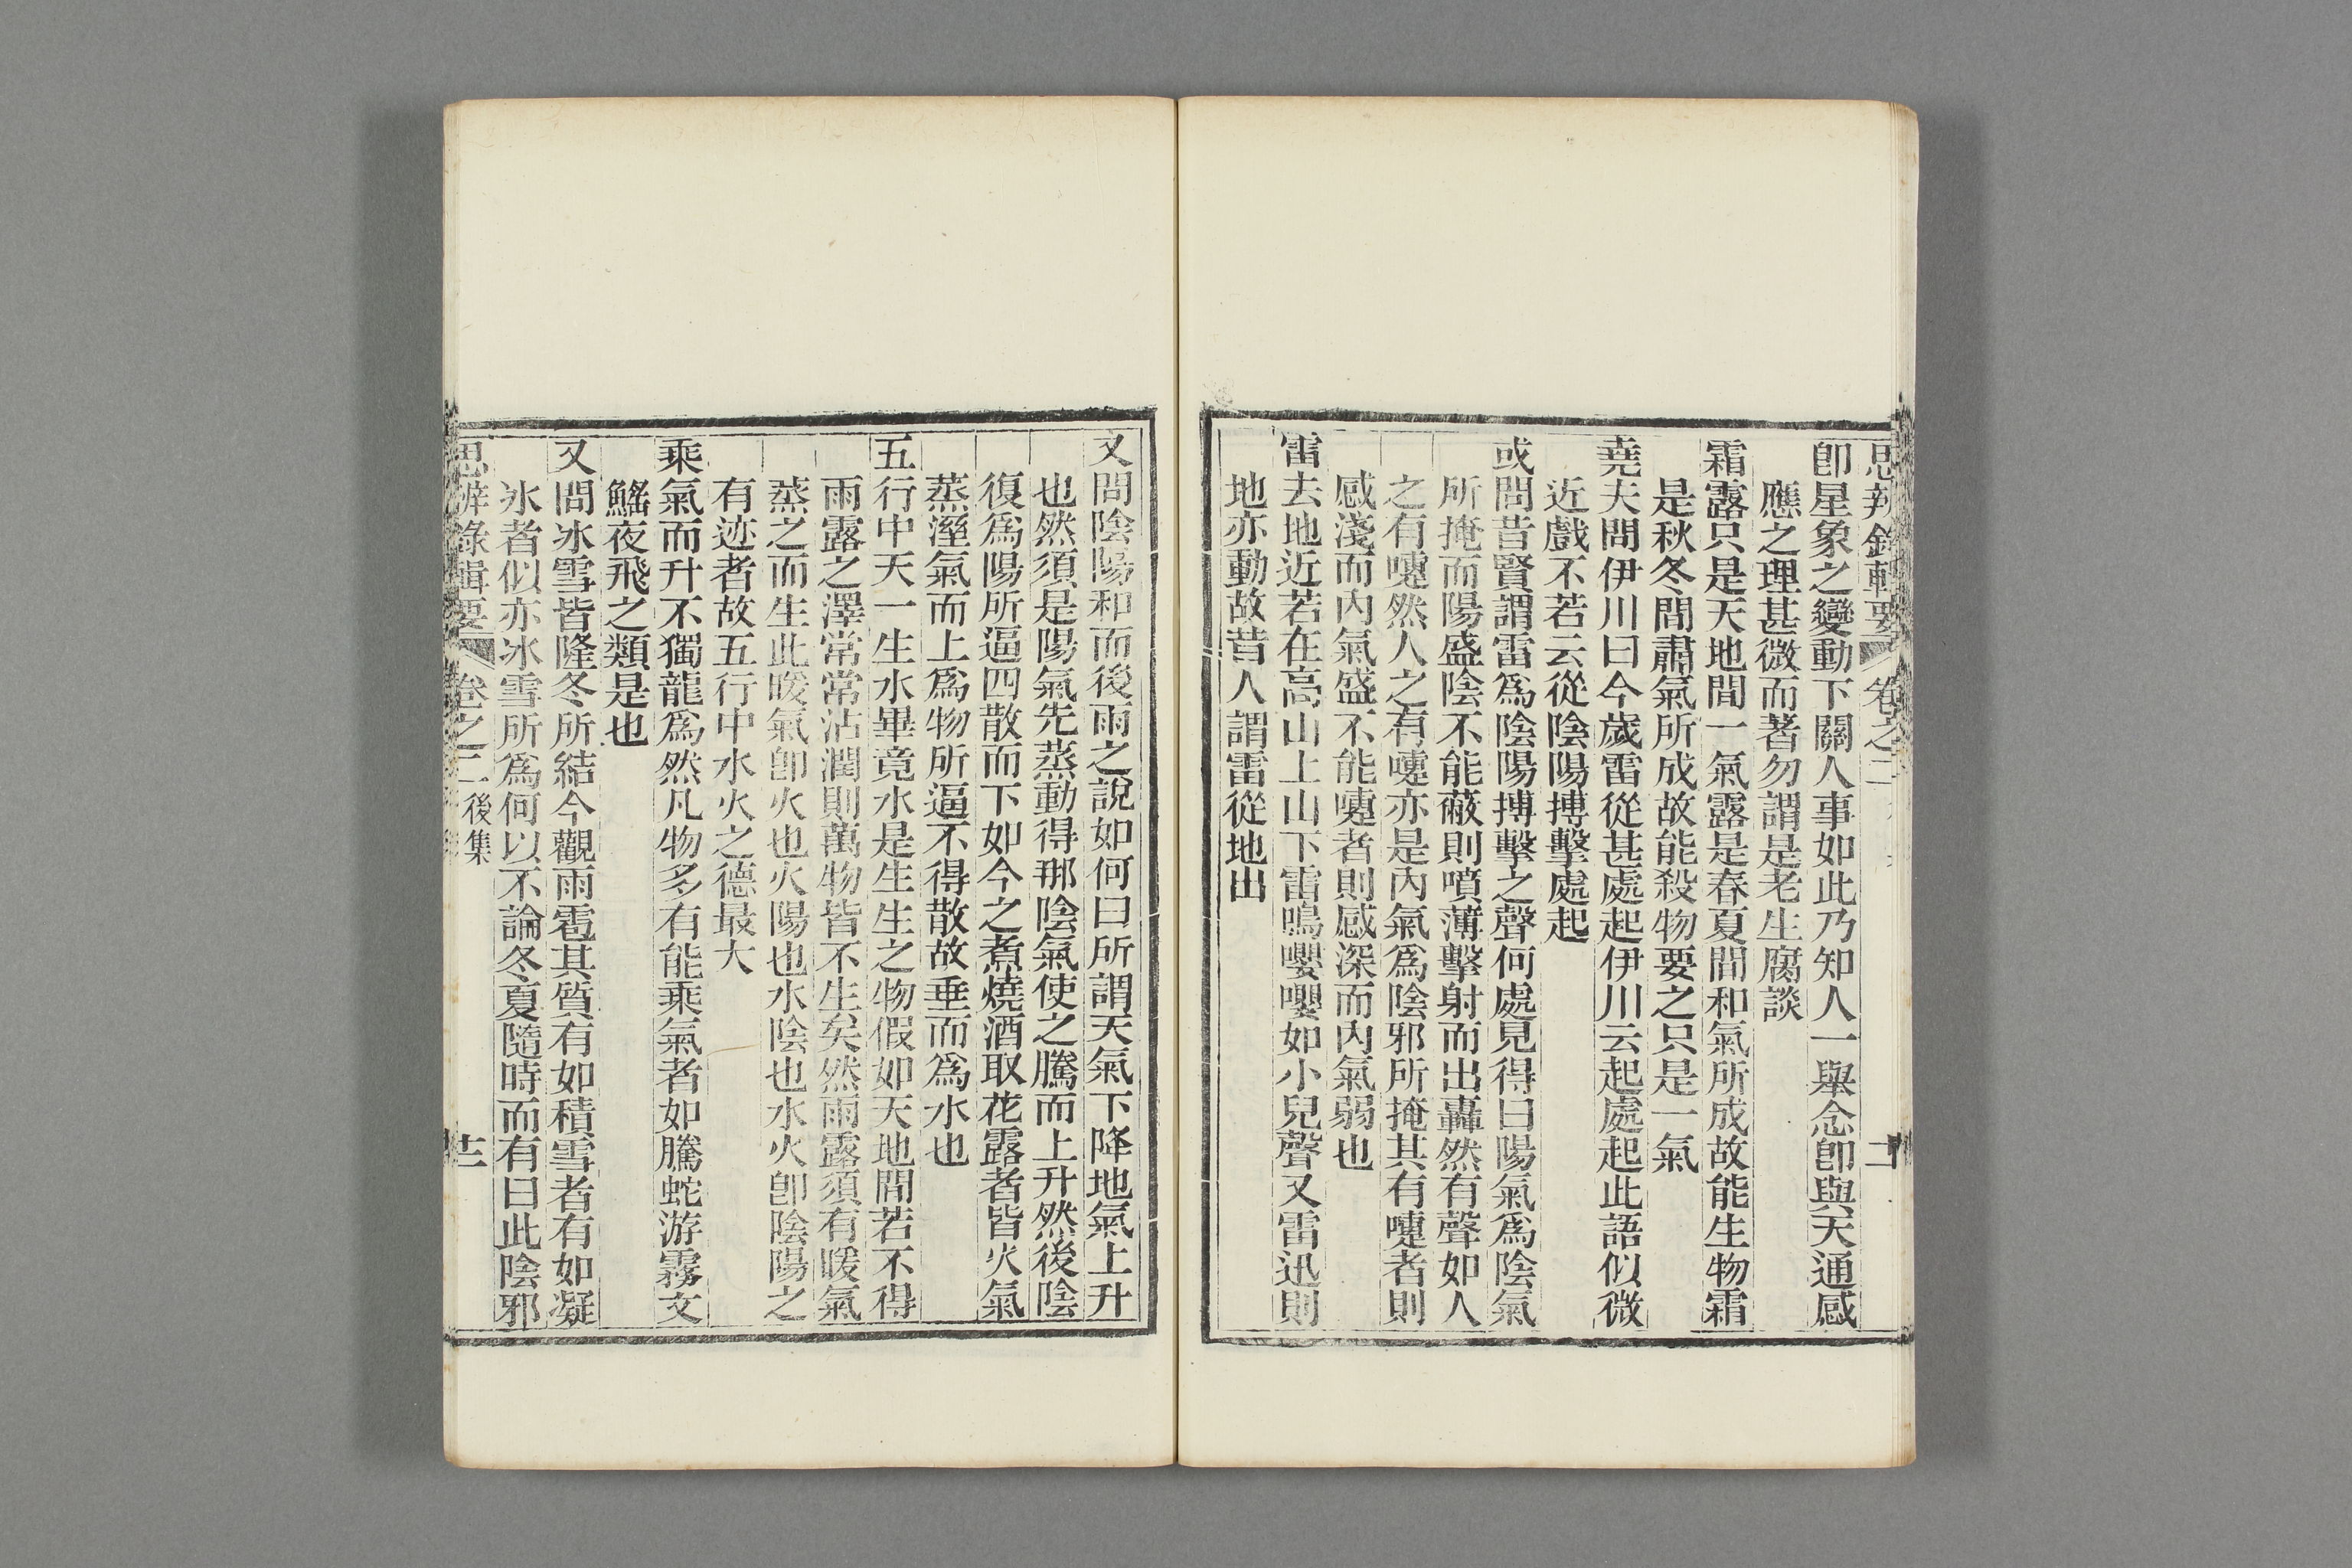 思辨錄輯要 卷之二
卽星象之變動下關人事如此乃知人一舉念卽與天通感
應之理甚微而著勿謂是老生腐談
霜露只是天地間一氣露是春夏間和氣所成故能生物霜
是秋冬間肅氣所成故能殺物要之只是一氣
堯夫問伊川曰今歲雷從甚處起伊川云起處起此語似微
近戲不若云從陰陽搏擊處起
或問昔賢謂雷爲陰陽搏擊之聲何處見得曰陽氣爲陰氣
所掩而陽盛陰不能蔽則噴薄擊射而出轟然有聲如人
之有嚏然人之有嚏亦是內氣爲陰邪所掩其有嚏者則
感淺而內氣盛不能嚏者則感深而內氣弱也
雷去地近若在高山上山下雷鳴嚶嚶如小兒聲又雷迅則
地亦動故昔人謂雷從地出
又問陰陽和而後雨之說如何曰所謂天氣下降地氣上升
也然須是陽氣先蒸動得那陰氣使之騰而上升然後陰
復爲陽所逼四散而下如今之煮燒酒取花露者皆火氣
蒸溼氣而上爲物所逼不得散故垂而爲水也
五行中天一生水畢竟水是生生之物假如天地間若不得
雨露之澤常常沾潤則萬物皆不生矣然雨露須有暖氣
蒸之而生此暖氣卽火也火陽也水陰也水火卽陰陽之
有迹者故五行中水火之德最大
乘氣而升不獨龍爲然凡物多有能乘氣者如騰蛇游霧文
鰩夜飛之類是也
又問冰雪皆隆冬所結今觀雨雹其質有如積雪者有如凝
冰者似亦冰雪所爲何以不論冬夏隨時而有曰此陰邪
思辨錄輯要 卷之二 後集